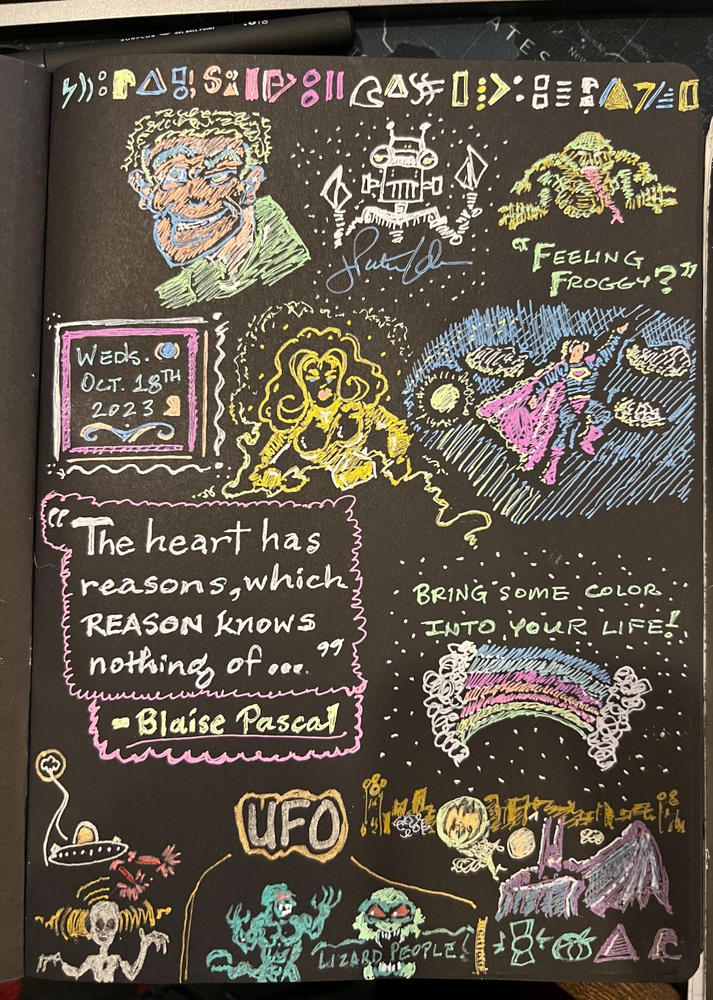 "FEELING
FROGGY?"
WEDS.
OCT. 18TH
2023
"The heart has
reasons, which
REASON knows
nothing of... "
- Blaise Pascal
BRING SOME COLOR
INTO YOUR LIFE!
UFO
LIZARD PEOPLE!